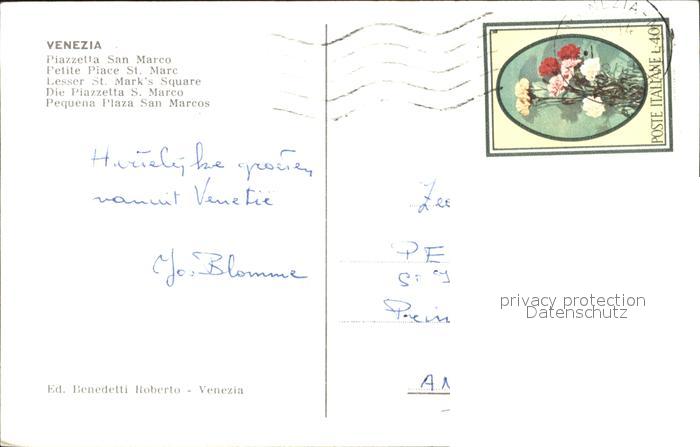 VENEZIA
Piazzetta San Marco
Petite Place St. Marc
Lesser St. Mark's Square
Die Piazzetta S. Marco
Pequena Plaza San Marcos
Hartelijke groeten
vanuit Venetië
Jo. Blomme
Ed. Benedetti Roberto - Venezia
VENEZIA
POSTE ITALIANE L.40
Zee
PE
St J
Prin
AN
privacy protection
Datenschutz